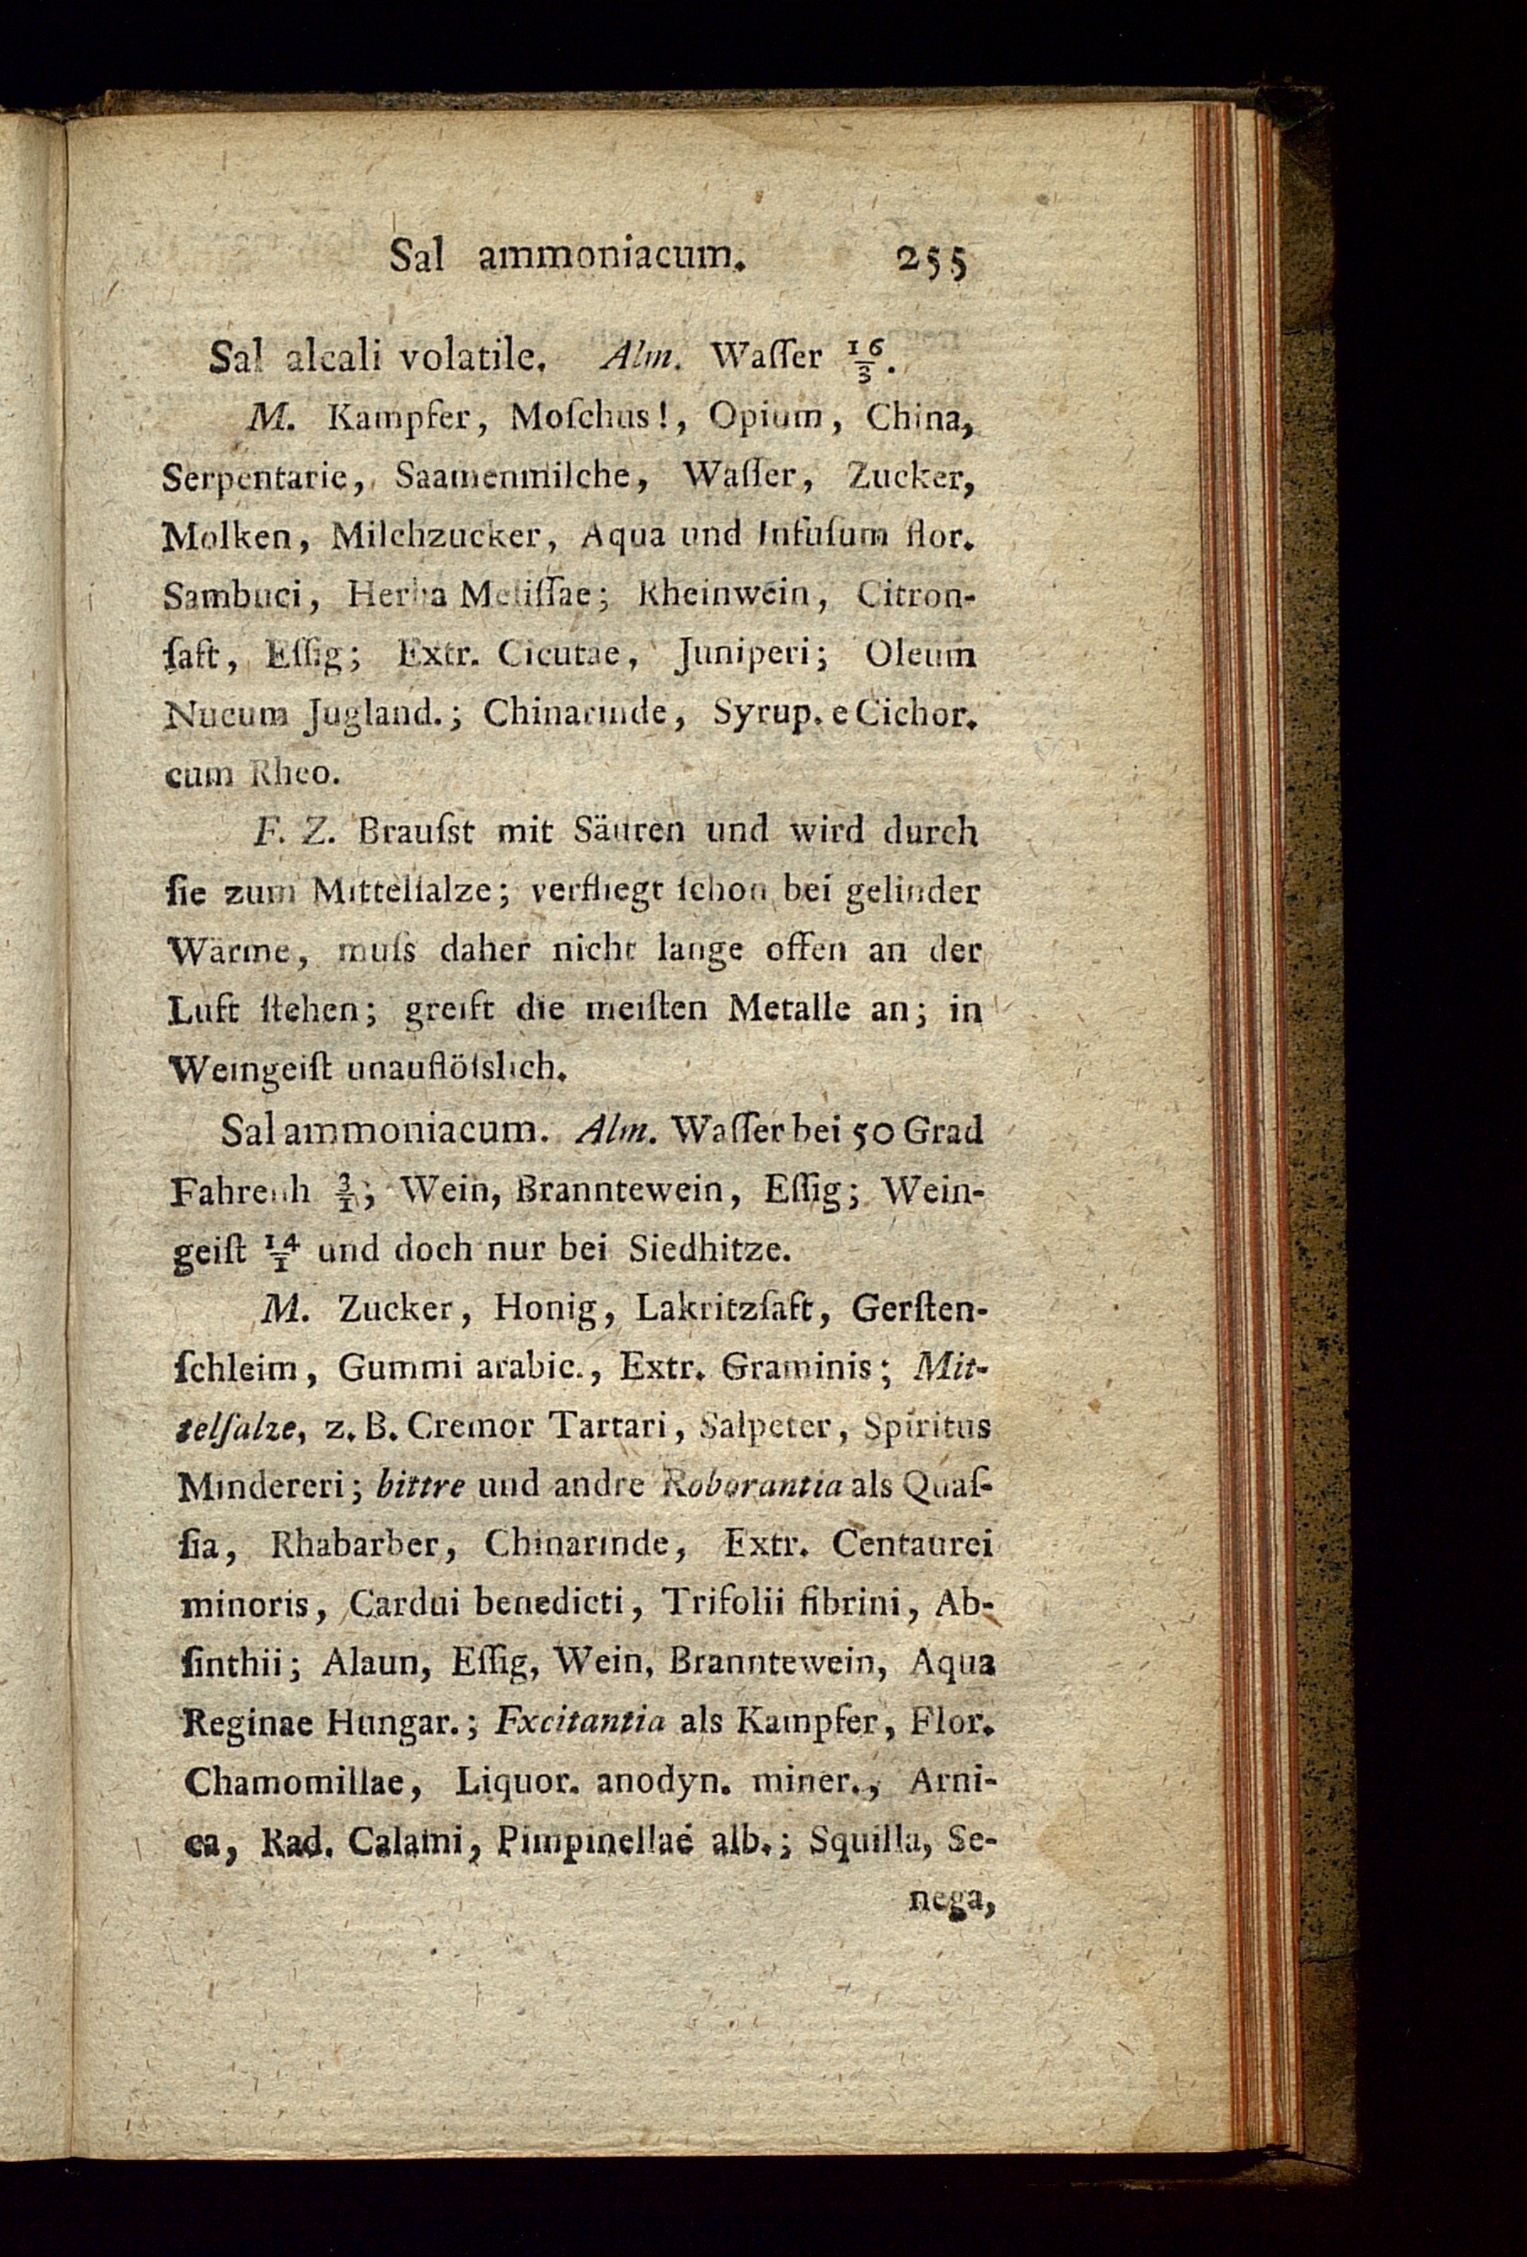 Sal ammoniacum. 255
Sal alcali volatile. Alm. Waſſer 16/3.
M. Kampfer, Moſchus!, Opium, China,
Serpentarie, Saamenmilche, Waſſer, Zucker,
Molken, Milchzucker, Aqua und Infuſum flor.
Sambuci, Herba Meliſſae; Rheinwein, Citron-
ſaft, Eſſig; Extr. Cicutae, Juniperi; Oleum
Nucum Jugland.; Chinarinde, Syrup. e Cichor.
cum Rheo.
F. Z. Brauſst mit Säuren und wird durch
ſie zum Mittelſalze; verfliegt ſchon bei gelinder
Wärme, muſs daher nicht lange offen an der
Luft ſtehen; greift die meiſten Metalle an; in
Weingeiſt unauflöſslich.
Sal ammoniacum. Alm. Waſſer bei 50 Grad
Fahrenh 3/1; Wein, Branntewein, Eſſig; Wein-
geiſt 14/1 und doch nur bei Siedhitze.
M. Zucker, Honig, Lakritzſaft, Gerſten-
ſchleim, Gummi arabic., Extr. Graminis; Mit-
telſalze, z. B. Cremor Tartari, Salpeter, Spiritus
Mindereri; bittre und andre Roborantia als Quaſ-
ſia, Rhabarber, Chinarinde, Extr. Centaurei
minoris, Cardui benedicti, Trifolii fibrini, Ab-
ſinthii; Alaun, Eſſig, Wein, Branntewein, Aqua
Reginae Hungar.; Excitantia als Kampfer, Flor.
Chamomillae, Liquor. anodyn. miner., Arni-
ca, Rad. Calami, Pimpinellae alb.; Squilla, Se-
nega,